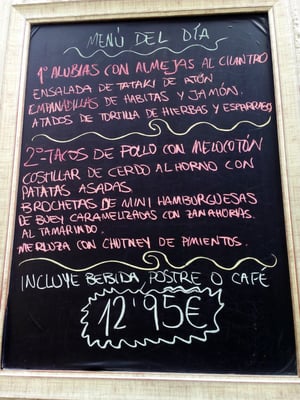 MENÚ DEL DÍA
1º ALUBIAS CON ALMEJAS AL CILANTRO
ENSALADA DE TATAKI DE ATÚN
EMPANADILLAS DE HABITAS Y JAMÓN.
ATADOS DE TORTILLA DE HIERBAS Y ESPARRAGO
2º-TACOS DE POLLO CON MELOCOTÓN
COSTILLAR DE CERDO AL HORNO CON
PATATAS ASADAS.
BROCHETAS DE MINI HAMBURGUESAS
DE BUEY CARAMELIZADAS CON ZANAHORIAS.
AL TAMARINDO.
MERLUZA CON CHUTNEY DE PIMIENTOS.
INCLUYE BEBIDA, POSTRE O CAFÉ
12'95€